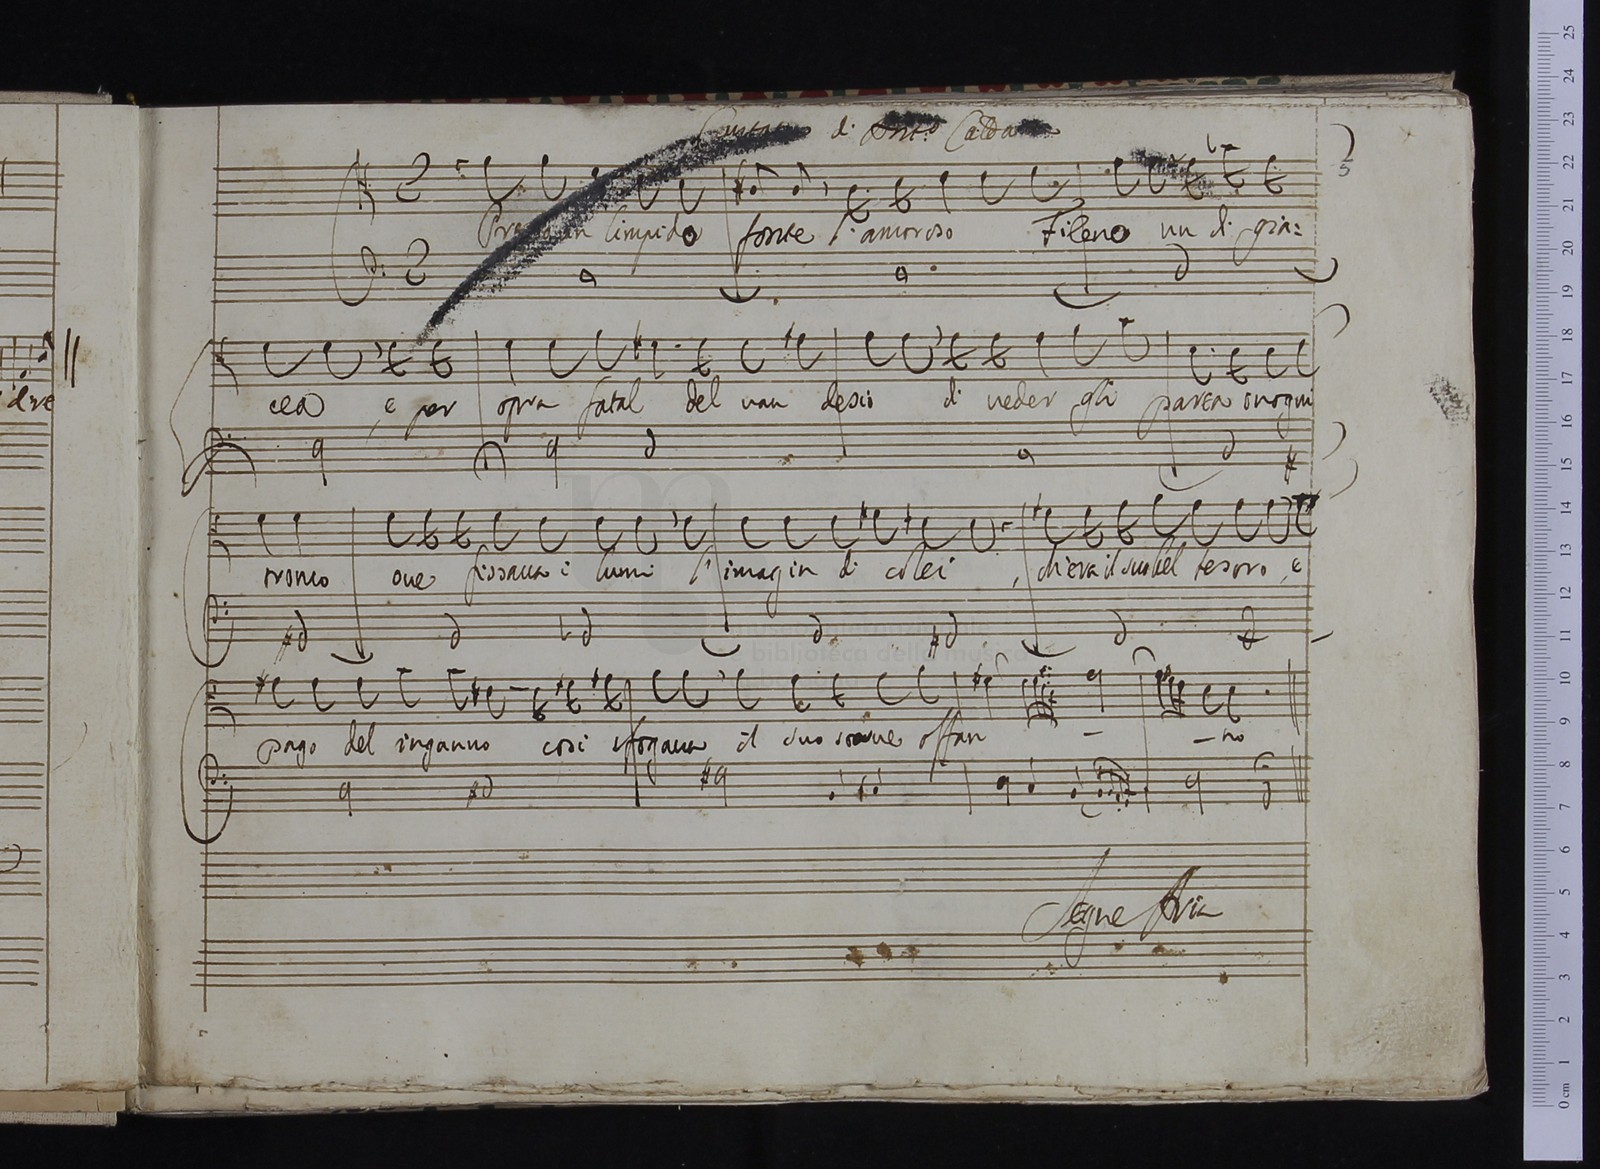 di Ant.o Calda
limpido fonte l'amoroso Fileno un dì gia=
cea e per opra fatal del van desio di veder gli parea in ogni
tronco ove fissava i lumi l'imagin di colei, ch'era il suo bel tesoro, e
pago del inganno così sfogava il suo soave affan - - no
Segue Aria
dre
museo internazionale
e biblioteca della musica
25
24
23
22
21
20
19
18
17
16
15
14
13
12
11
10
9
8
7
6
5
4
3
2
1
0 cm